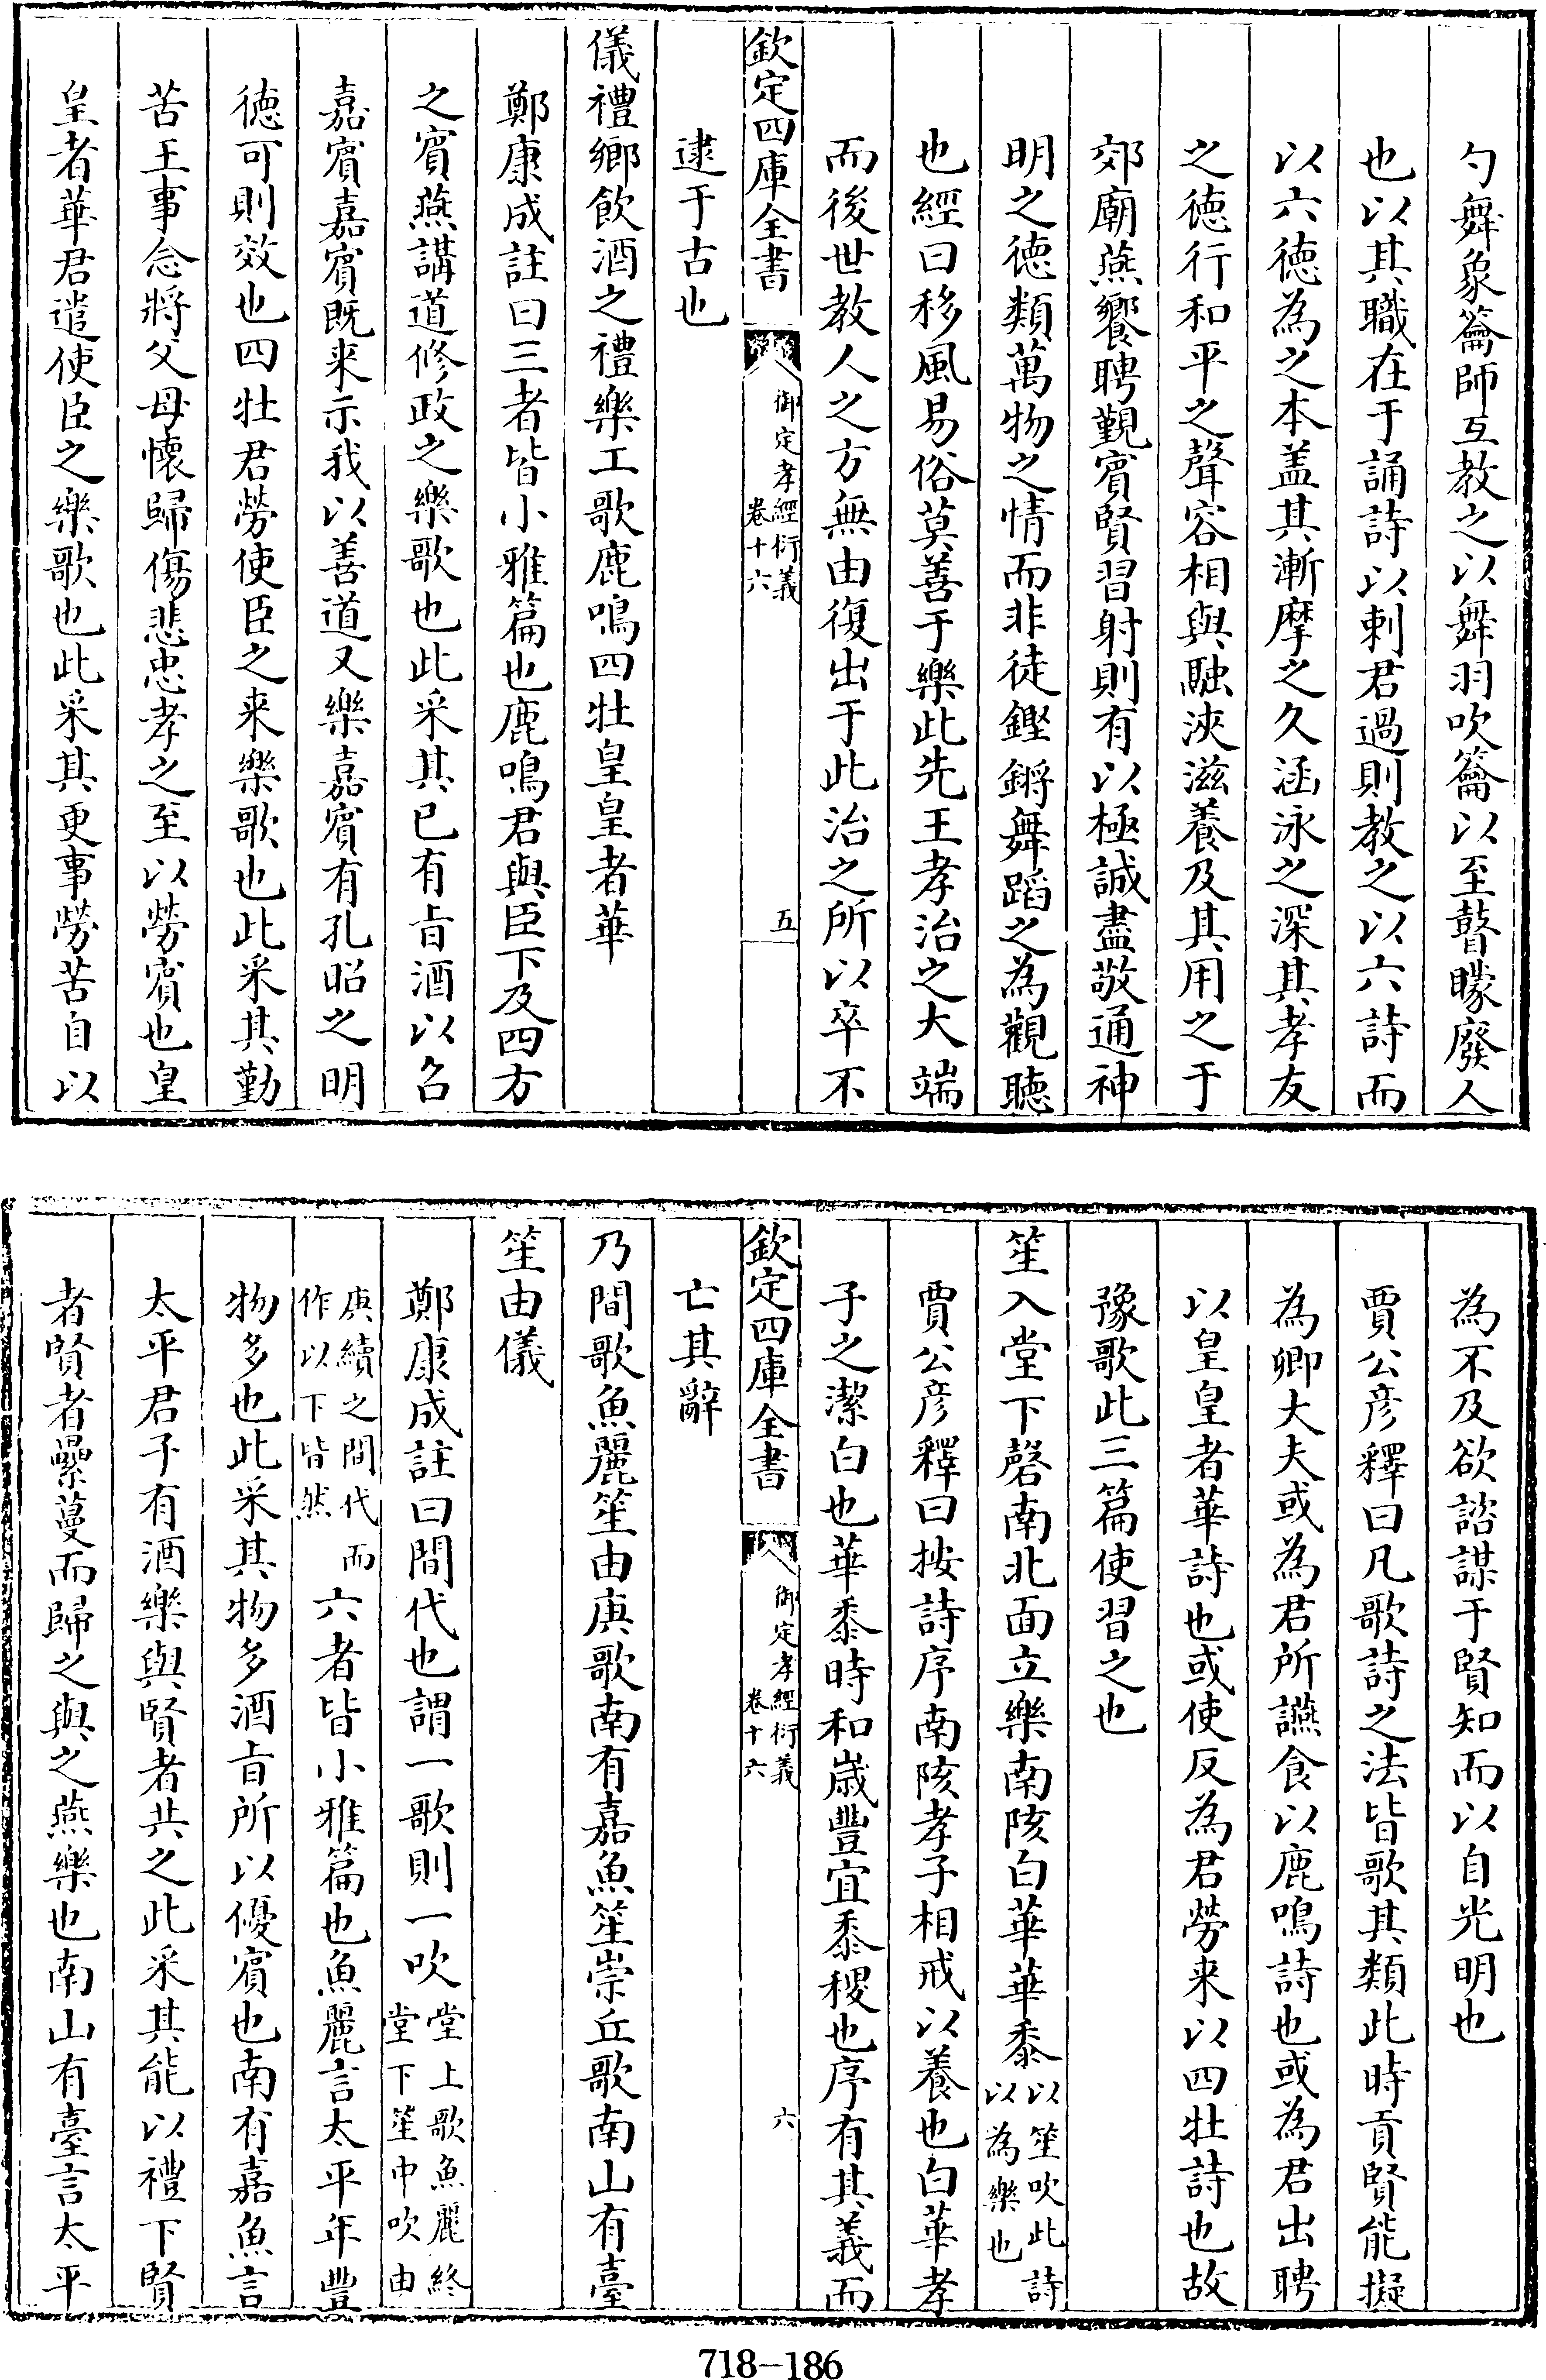 勺舞象籥師互教之以舞羽吹籥以至瞽矇廢人
也以其職在于誦詩以刺君過則教之以六詩而
以六德為之本盖其漸摩之久涵泳之深其孝友
之德行和平之聲容相與融浹滋養及其用之于
郊廟燕饗聘覲賓賢習射則有以極誠盡敬通神
明之德類萬物之情而非徒鏗鏘舞蹈之為觀聽
也經曰移風易俗莫善于樂此先王孝治之大端
而後世教人之方無由復出于此治之所以卒不
欽定四庫全書 御定孝經衍義 卷十六 五
逮于古也
儀禮鄉飲酒之禮樂工歌鹿鳴四牡皇皇者華
鄭康成註曰三者皆小雅篇也鹿鳴君與臣下及四方
之賓燕講道修政之樂歌也此采其已有旨酒以召
嘉賓嘉賓既来示我以善道又樂嘉賓有孔昭之明
德可則效也四牡君勞使臣之来樂歌也此采其勤
苦王事念將父母懷歸傷悲忠孝之至以勞賓也皇
皇者華君遣使臣之樂歌也此采其更事勞苦自以
為不及欲諮謀于賢知而以自光明也
賈公彦釋曰凡歌詩之法皆歌其類此時貢賢能擬
為卿大夫或為君所讌食以鹿鳴詩也或為君出聘
以皇皇者華詩也或使反為君勞来以四牡詩也故
豫歌此三篇使習之也
笙入堂下磬南北面立樂南陔白華華黍以笙吹此詩以為樂也
賈公彦釋曰按詩序南陔孝子相戒以養也白華孝
子之潔白也華黍時和歲豐宜黍稷也序有其義而
欽定四庫全書 御定孝經衍義 卷十六 六
亡其辭
乃間歌魚麗笙由庚歌南有嘉魚笙崇丘歌南山有臺
笙由儀
鄭康成註曰間代也謂一歌則一吹堂上歌魚麗終堂下笙中吹由
庚續之間代而作以下皆然六者皆小雅篇也魚麗言太平年豐
物多也此采其物多酒旨所以優賓也南有嘉魚言
太平君子有酒樂與賢者共之此采其能以禮下賢
者賢者纍蔓而歸之與之燕樂也南山有臺言太平
718-186